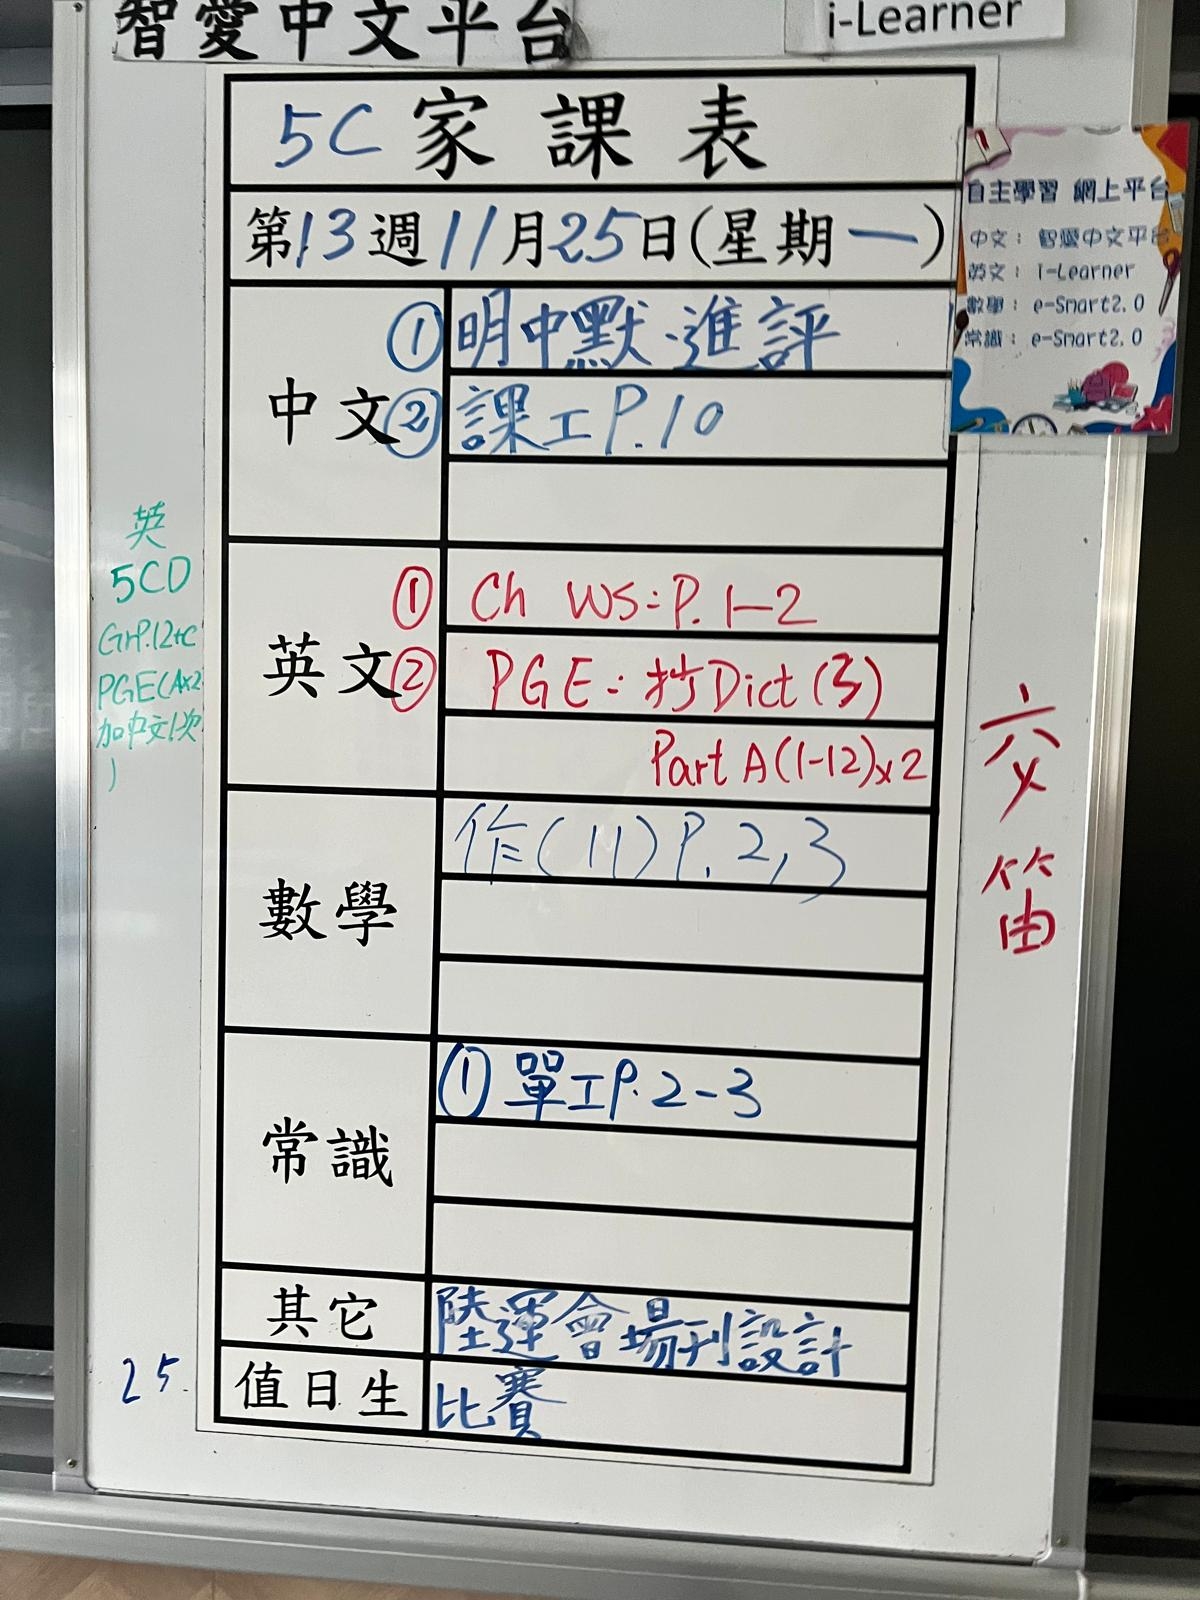 智愛中文平台
i-Learner
5C 家課表
第13週11月25日(星期一)
自主學習 網上平台
中文： 智愛中文平台
英文： i-Learner
數學： e-Smart2.0
常識： e-Smart2.0
中文
① 明中默.進評
② 課工P.10
英
5CD
GrP.12+C
PGE(A×2
加中文1次
)
英文
① Ch WS:P.1-2
② PGE:抄Dict(3)
Part A(1-12)×2
交
笛
數學
作(11)P.2,3
常識
① 單工P.2-3
其它
陸運會場刊設計
25.
值日生
比賽